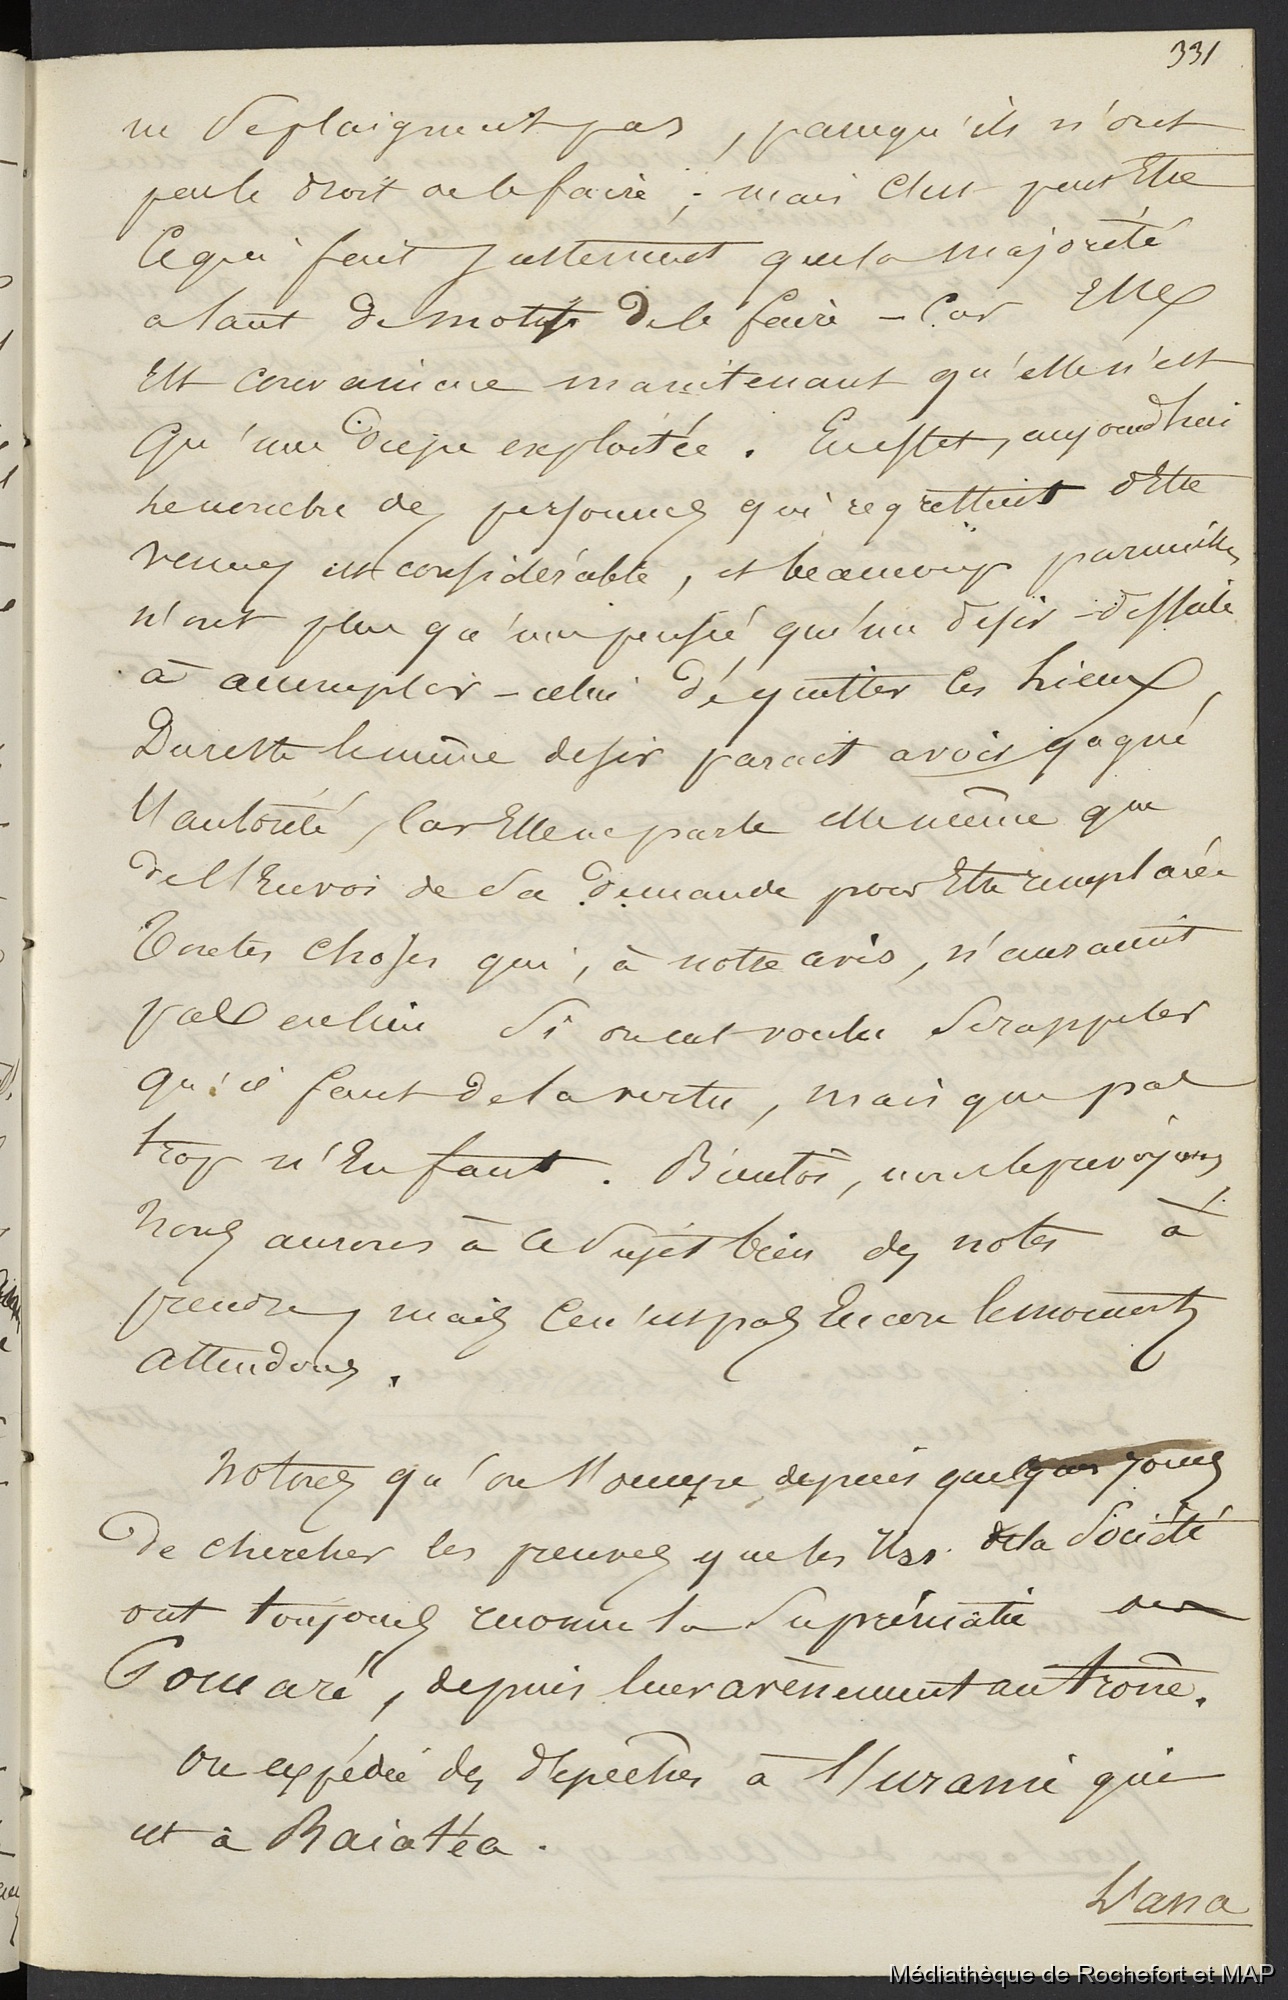 331
ne se plaignent pas, parcequ'ils n'ont
pas le droit de le faire; mais c'est peut être
ce qui fait justement que la majorité
a tant de motifs de le faire - Car elle
est convaincue maintenant qu'elle n'est
qu'une dupe exploitée. En effet, aujourd'hui
le nombre de personnes qui regrettent d'être
venues est considérable, et beaucoup parmi elles
n'ont plus qu'une pensée, qu'un desir
à accomplir - celui de quitter les lieux,
Du reste le même desir parait avoir gagné
l'autorité, car elle ne parle elle même que
de l'envoi de sa demande pour être remplacée
Toutes choses qui, à notre avis, n'auraient
pas eu lieu si on eut voulu se rappeler
qu'il faut de la vertu, mais que pas
trop n'en faut. Bientôt, nous le prevoyons,
nous aurons à ce sujet bien des notes à
prendre, mais ce n'est pas encore le moment,
attendons.
Notons qu'on s'occupe depuis quelques jours
de chercher les preuves que les Iles de la Société
ont toujours reconnu la suprématie des
Pomaré, depuis leur avènement au trône.
On expédie des dépêches à l'Uranie qui
est à Raiatéa.
L'ana
Médiathèque de Rochefort et MAP